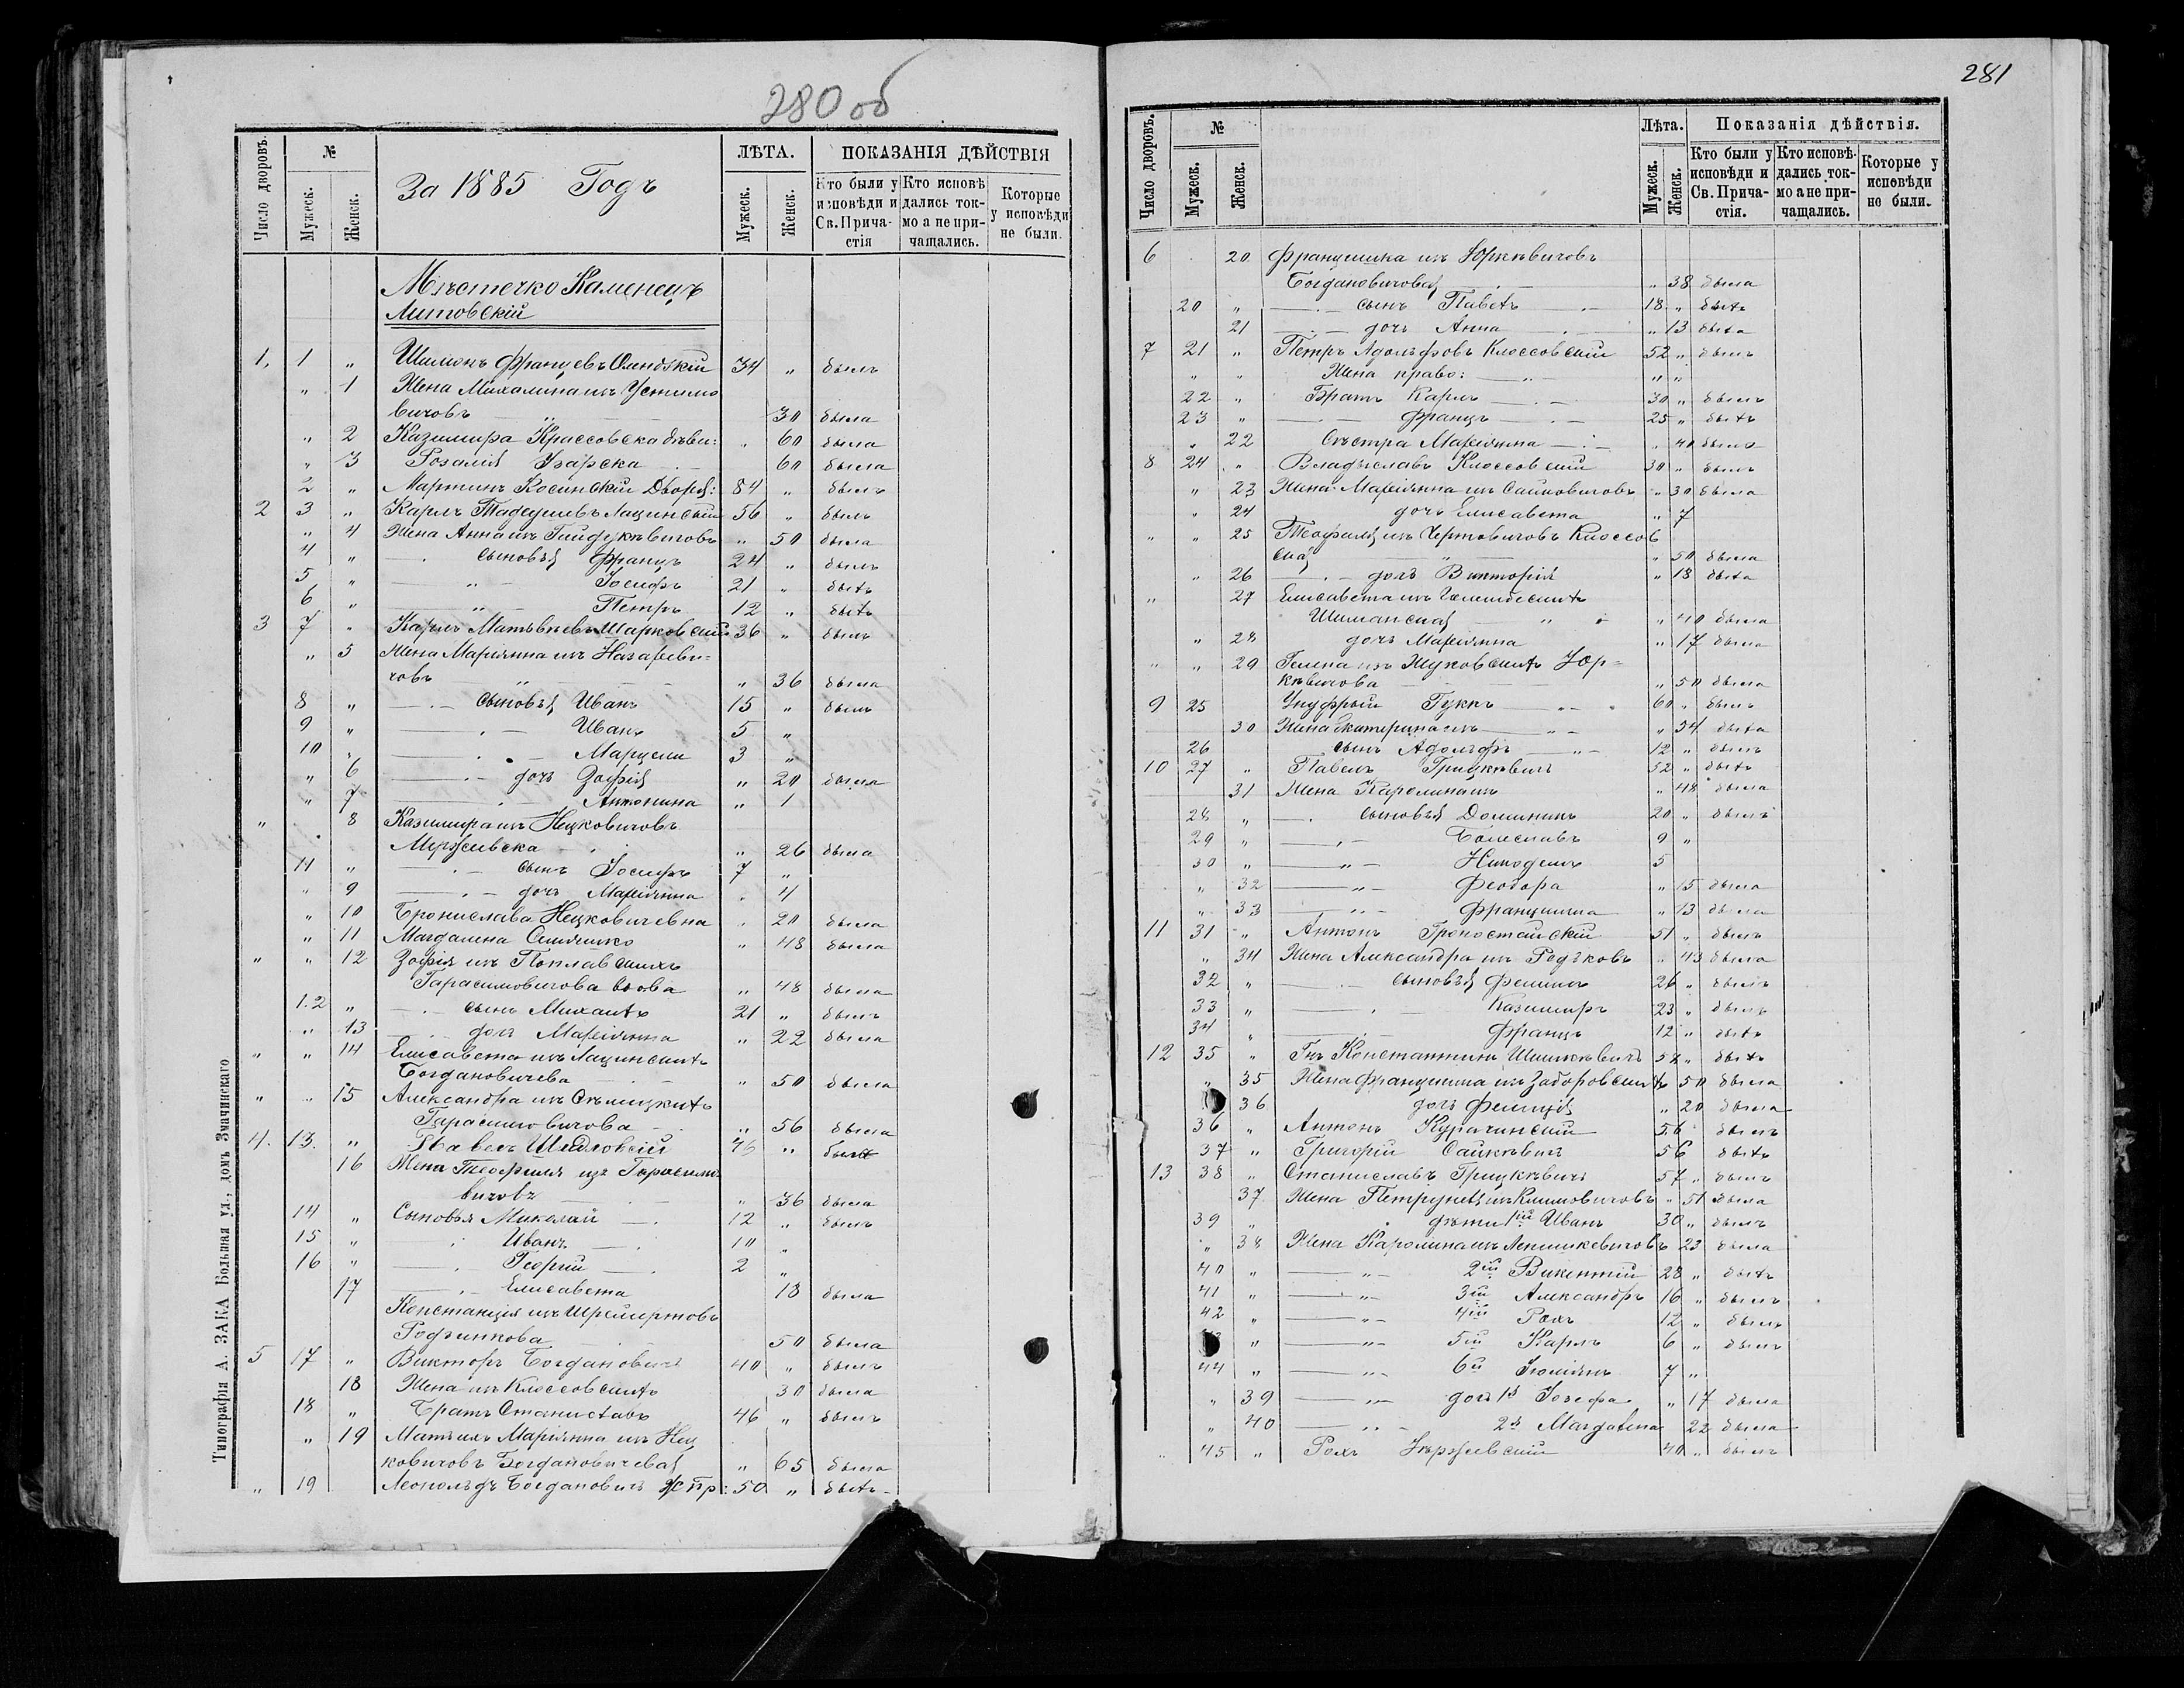 280 об
Число дворовъ. № ЛѢТА. ПОКАЗАНІЯ ДѢЙСТВІЯ
За 1885 Годъ
Мужеск. Женск. Мужеск. Женск. Кто были у исповѣди и Св. Прича-стія Кто исповѣ дались ток-мо а не при-чащались. Которые у исповѣди не были.
Мѣстечко Каменецъ
Литовскій
1, 1 „ Шимонъ Францевъ 34 „ былъ
„ 1 Жена Михалина изъ Устимо
вичовъ „ 30 была
„ 2 Казимира Крассовска дѣви: „ 60 была
„ 3 Розалія 60 была
2 „ Мартинъ Косинскій Двор: 84 „ былъ
2 3 „ Карлъ Тадеушевъ Лацинскій 56 „ былъ
„ 4 Жена Анна изъ Гайдукѣвичовъ „ 50 была
4 „ сыновья Францъ 24 „ былъ
5 „ „ Іосифъ 21 „ былъ
6 „ „ Петръ 12 „ былъ
3 7 „ Карлъ Матвѣевъ Шарковскій 36 „ былъ
„ 5 Жена Маріянна изъ Назареви-
човъ „ „ 36 была
8 „ сыновья Иванъ 15 „ былъ
9 „ Иванъ 5 „
10 „ Марцели 3 „
„ 6 дочь Зофія „ 20 была
„ 7 Антонина „ 1
„ 8 Казимира изъ Нецковичовъ
„ 26 была
11 „ сынъ Іосифъ 7 „
„ 9 дочь Маріянна „ 4
„ 10 Бронислава Нецковичевна „ 20 была
„ 11 Магдалена „ 48 была
„ „ 12 Зофія изъ Поплавскихъ
Гарасимовичова вдова „ 48 была
12 „ сынъ Михаилъ 21 „ былъ
„ 13 дочь Маріянна „ 22 была
„ „ 14 Елисавета изъ Лацинскихъ
Богдановичева „ 50 была
„ „ 15 Александра изъ
Гарасимовичова „ 56 была
4. 13. „ Павелъ Шидловскій 46 „ былъ
16 Жена Теофиля изъ Гарасими-
вичовъ „ 36 была
14 „ Сыновья Миколай 12 „ былъ
15 „ Иванъ 10 „
16 „ Георгій 2 „
17 Елисавета 18 была
Констанція изъ
50 была
5 17 „ Викторъ Богдановичъ 40 „ былъ
18 Жена изъ Клоссовскихъ 30 была
18 „ Братъ Станиславъ 46 „ былъ
„ 19 Мать ихъ Маріянна изъ Нец
ковичовъ Богдановичева „ 65 была
„ 19 Леопольдъ Богдановичъ 50 „ былъ
Типографія А. ЗАКА Большая ул., домъ Значинскаго
281
Число дворовъ. № Лѣта. Показанія дѣйствія.
Мужеск. Женск. Мужеск. Женск. Кто были у исповѣди и Св. Прича-стія. Кто исповѣ-дались ток-мо а не при-чащались. Которые у исповѣди не были.
6 20 Францишка изъ Юркѣвичовъ
Богдановичова „ 38 была
20 „ сынъ Павелъ 18 „ былъ
21 дочь Анна „ 13 была
7 21 „ Петръ Адольфовъ Клоссовскій 52 „ былъ
„ „ Жена право: „ „ „
22 „ Братъ Карлъ 30 „ былъ
23 „ Францъ 25 „ былъ
„ 22 Сѣстра Маріянна „ 40 была
8 24 „ Владыславъ Клоссовскій 30 „ былъ
„ 23 Жена Маріянна изъ Сайковичовъ „ 30 была
„ 24 дочь Елисавета „ 7
„ „ 25 Теофиля изъ Чертовичовъ Клоссов
ска „ 50 была
„ 26 дочь Викторія „ 18 была
„ 27 Елисавета изъ
Шиманска „ „ 40 была
„ 28 дочь Маріянна „ 17 была
„ „ 29 Гелена изъ Жуковскихъ Юр-
кѣвичова „ 50 была
9 25 Унуфрый Гукъ 60 „ былъ
30 Жена Екатерина изъ „ 54 была
26 сынъ Адольфъ 12 „ былъ
10 27 „ Павелъ Грицкѣвичъ 52 „ былъ
31 Жена Каролина изъ „ 48 была
28 „ сыновья Доминикъ 20 „ былъ
29 „ Болеславъ 9 „
30 „ „ Никодемъ 5
„ 32 „ Феодора „ 15 была
„ 33 „ Францишка „ 13 была
11 31 „ Антонъ Гроностайскій 51 „ былъ
„ 34 Жена Александра изъ Редьковъ „ 43 была
32 „ сыновья Феликсъ 26 „ былъ
33 „ Казимиръ 23 „ былъ
34 „ Францъ 12 „ былъ
12 35 „ Гнъ Константинъ Шишкѣвичъ 52 „ былъ
„ 35 Жена Францишка изъ Заборовскихъ 50 была
36 дочь Фелиція „ 20 была
36 „ Антонъ Курачинскій 56 былъ
37 „ Григорій Сайкѣвичъ 56 былъ
13 38 „ Станиславъ Грицкѣвичъ 57 „ былъ
37 Жена Петрунеля изъ Климовичовъ „ 51 была
39 „ дѣти 1ій Иванъ 30 „ былъ
„ 38 Жена Каролина изъ 23 была
40 „ „ 2ій Викентій 28 „ былъ
41 „ „ 3ій Александръ 16 „ былъ
42 „ „ 4ій Рохъ 12 „ былъ
„ „ 5ій Карлъ 6 „ былъ
44 „ „ 6й Юліянъ 7 „
„ 39 „ дочь 1я Іозефа „ 17 была
„ 40 „ 2я Магдалена 22 была
„ 45 „ Рохъ 40 „ былъ